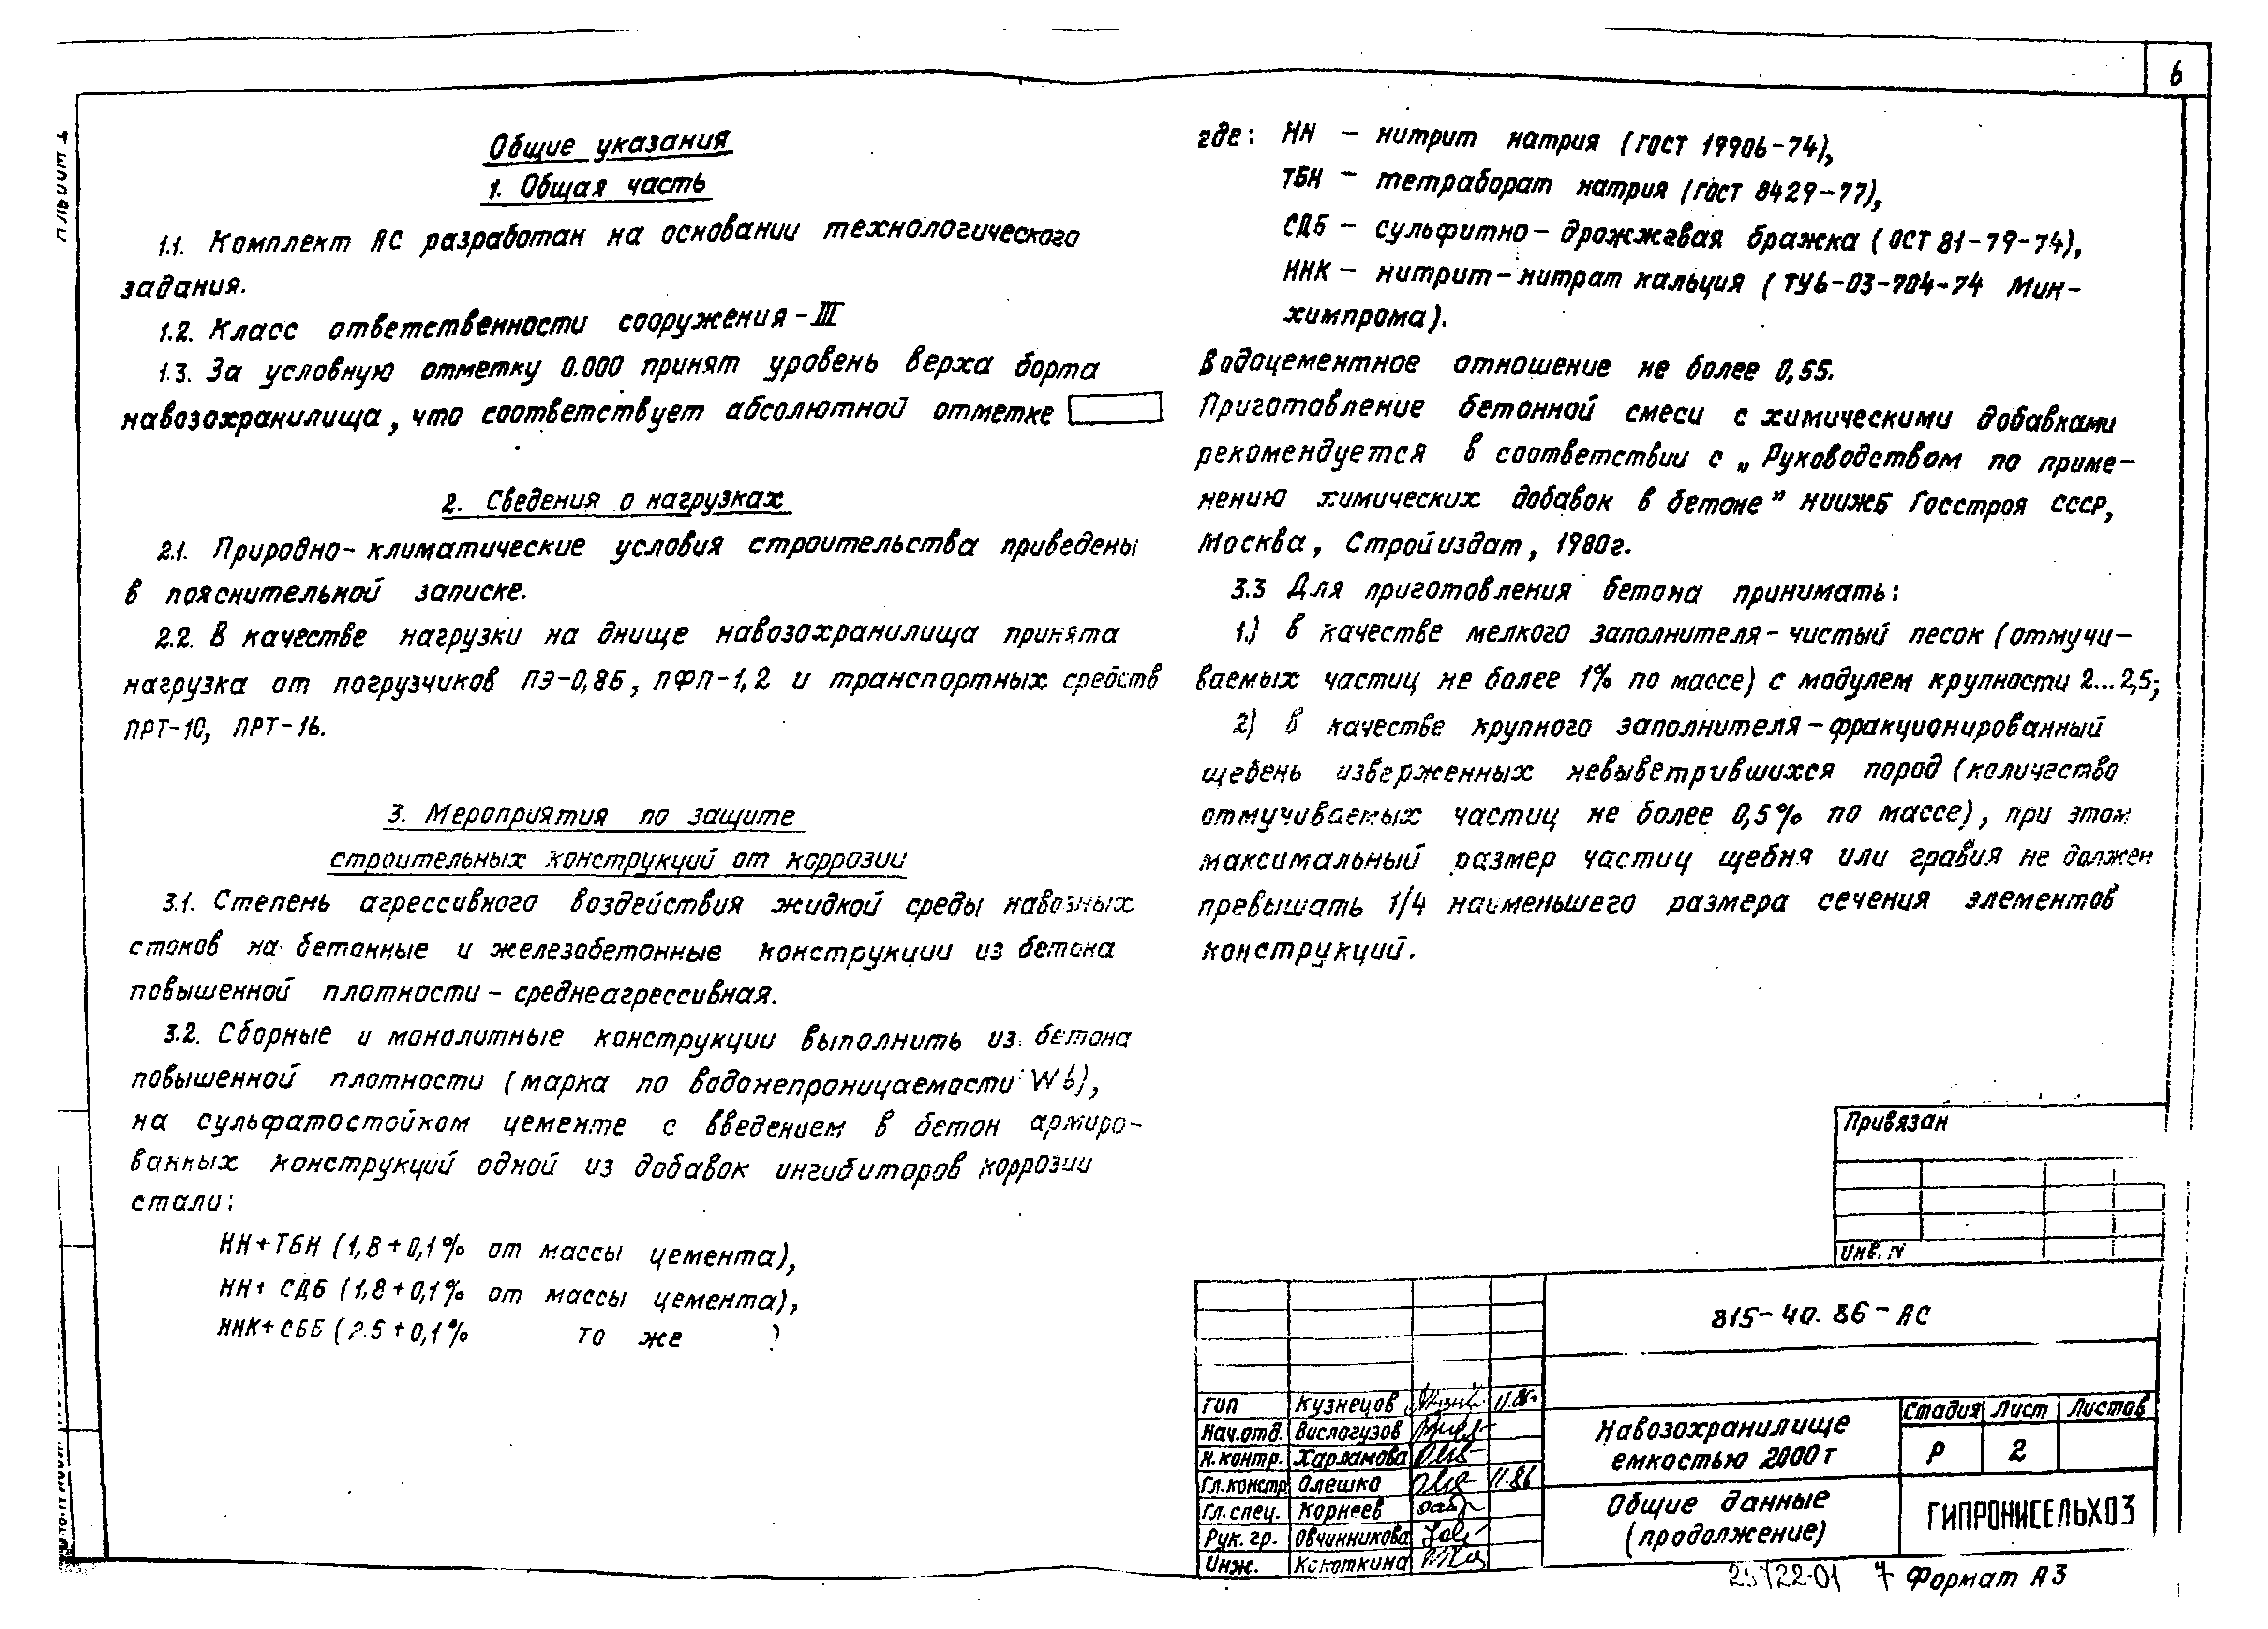 6
Альбом 1
Общие указания
1. Общая часть
1.1. Комплект АС разработан на основании технологического
задания.
1.2. Класс ответственности сооружения - III
1.3. За условную отметку 0.000 принят уровень верха борта
навозохранилища, что соответствует абсолютной отметке
2. Сведения о нагрузках
2.1. Природно-климатические условия строительства приведены
в пояснительной записке.
2.2. В качестве нагрузки на днище навозохранилища принята
нагрузка от погрузчиков ПЭ-0,8Б, ПФП-1,2 и транспортных средств
ПРТ-10, ПРТ-16.
3. Мероприятия по защите
строительных конструкций от коррозии
3.1. Степень агрессивного воздействия жидкой среды навозных
стоков на бетонные и железобетонные конструкции из бетона
повышенной плотности - среднеагрессивная.
3.2. Сборные и монолитные конструкции выполнить из бетона
повышенной плотности (марка по водонепроницаемости W6),
на сульфатостойком цементе с введением в бетон армиро-
ванных конструкций одной из добавок ингибиторов коррозии
стали:
НН+ТБН (1,8+0,1% от массы цемента),
НН+ СДБ (1,8+0,1% от массы цемента),
ННК+СББ (2.5+0,1% то же )
где: НН - нитрит натрия (ГОСТ 19906-74),
ТБН - тетраборат натрия (ГОСТ 8429-77),
СДБ - сульфитно-дрожжевая бражка (ОСТ 81-79-74),
ННК - нитрит-нитрат кальция (ТУ6-03-704-74 Мин-
химпрома).
Водоцементное отношение не более 0,55.
Приготовление бетонной смеси с химическими добавками
рекомендуется в соответствии с „Руководством по приме-
нению химических добавок в бетоне" НИИЖБ Госстроя СССР,
Москва, Стройиздат, 1980г.
3.3 Для приготовления бетона принимать:
1.) в качестве мелкого заполнителя - чистый песок (отмучи-
ваемых частиц не более 1% по массе) с модулем крупности 2...2,5;
2) в качестве крупного заполнителя - фракционированный
щебень изверженных невыветрившихся пород (количество
отмучиваемых частиц не более 0,5% по массе), при этом
максимальный размер частиц щебня или гравия не должен
превышать 1/4 наименьшего размера сечения элементов
конструкций.
Привязан
Инв. N
815-40.86-АС
ГИП Кузнецов 11.86
Нач.отд. Вислогузов
Н.контр. Харламова
Гл.констр Олешко 11.86
Гл.спец. Корнеев
Рук.гр. Овчинникова
Инж. Кокоткина
Навозохранилище
емкостью 2000т
Стадия Лист Листов
Р 2
Общие данные
(продолжение)
ГИПРОНИСЕЛЬХОЗ
7 Формат А3